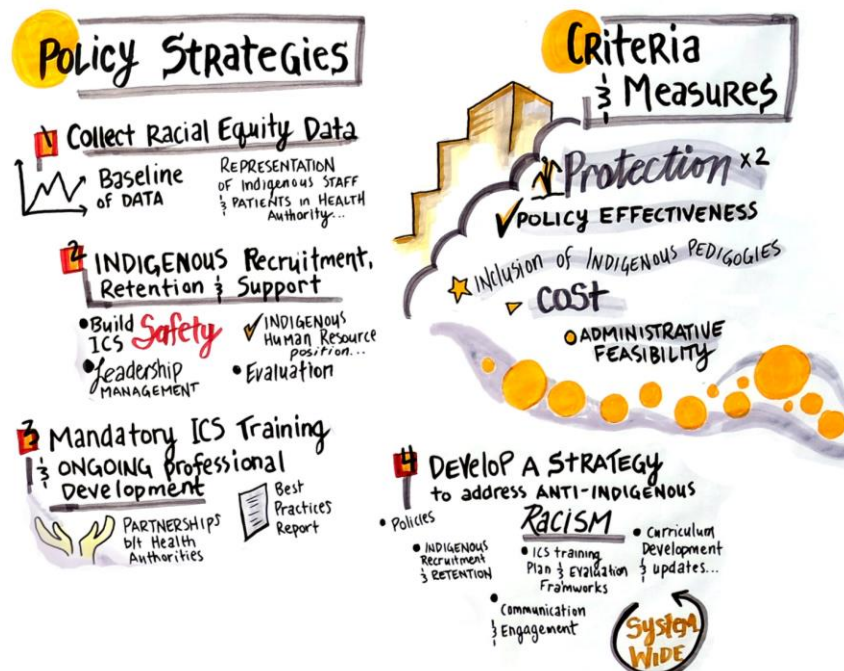 Policy Strategies
1 Collect Racial Equity Data
Baseline
of DATA
REPRESENTATION
of Indigenous STAFF
& PATIENTS in HEALTH
Authority...
2 INDIGENOUS Recruitment,
Retention & Support
• Build
ICS
Safety
✓ INDIGENOUS
Human Resource
position...
• Leadership
MANAGEMENT
• Evaluation
3 Mandatory ICS Training
& ONGOING professional
Development
PARTNERSHIPS
b/t Health
Authorities
Best
Practices
Report
Criteria
& Measures
Protection x2
✓ POLICY EFFECTIVENESS
INCLUSION of INDIGENOUS PEDIGOGIES
COST
ADMINISTRATIVE
FEASIBILITY
4 DEVELOP A STRATEGY
to address ANTI-INDIGENOUS
RACISM
• Policies
• INDIGENOUS
Recruitment
& RETENTION
• ICS training
Plan & Evaluation
Framworks
• Curriculum
Development
& updates...
• Communication
& Engagement
SYSTEM
WIDE